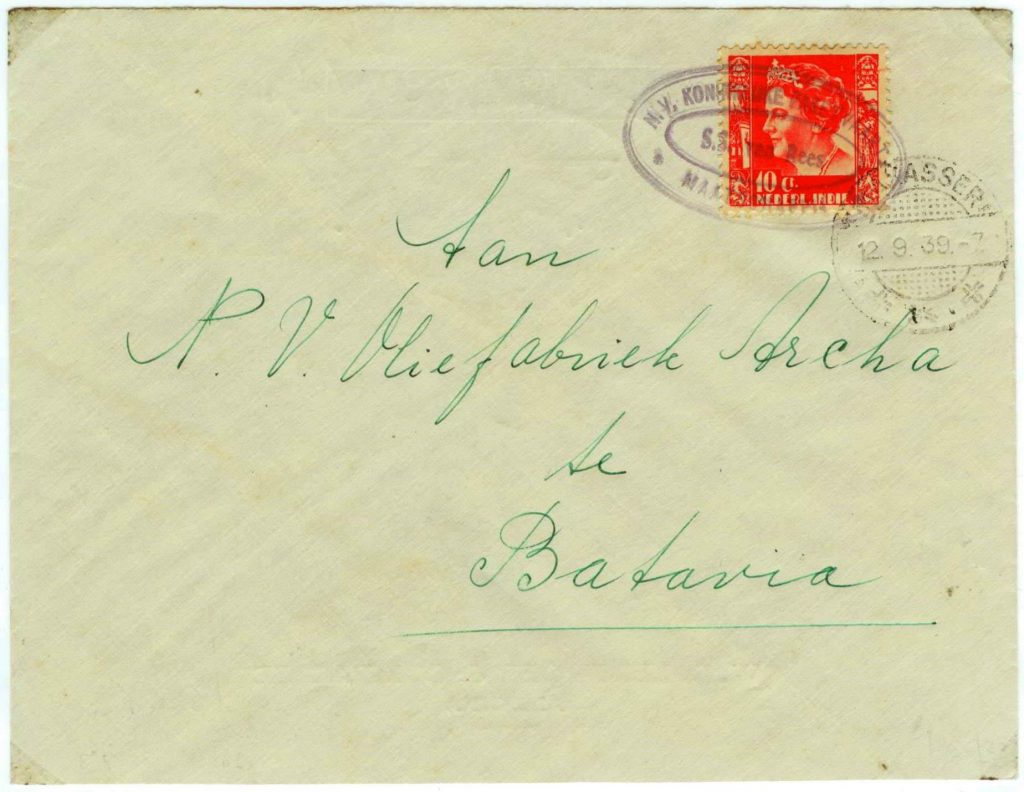 N.V. KONI
S.S. van Rees
10 C.
NEDERL. INDIE
ASSER
12.9.39.-7
Aan
N. V. Oliefabriek Archa
te
Batavia